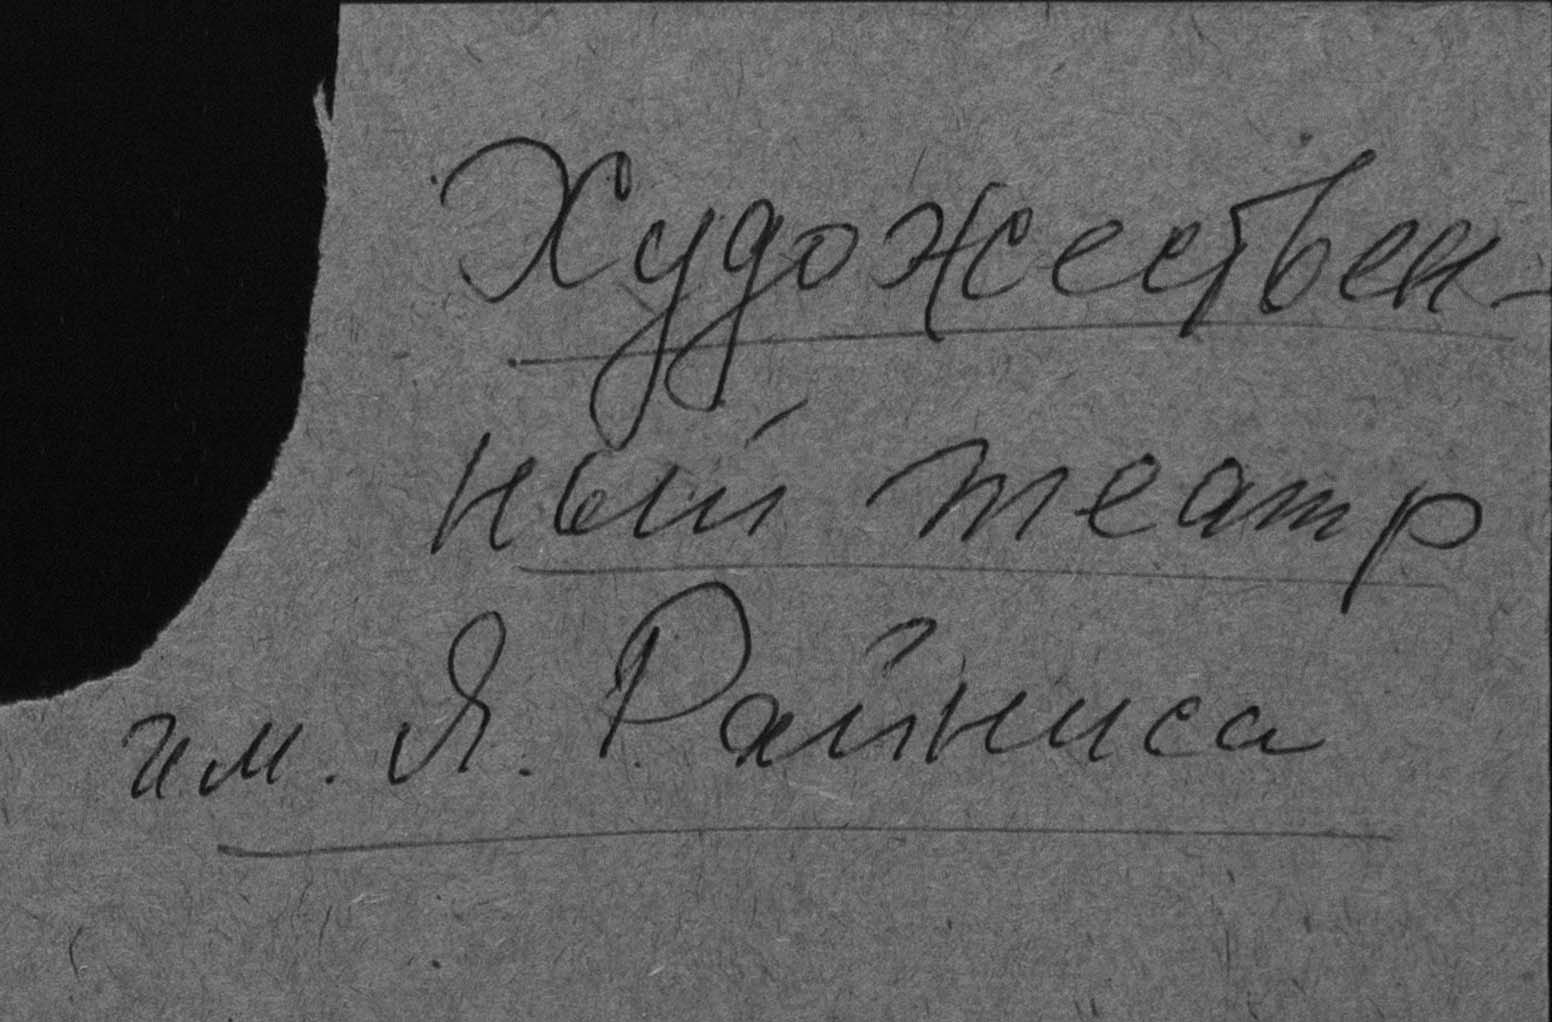 Художествен-
ный театр
им. Я. Райниса